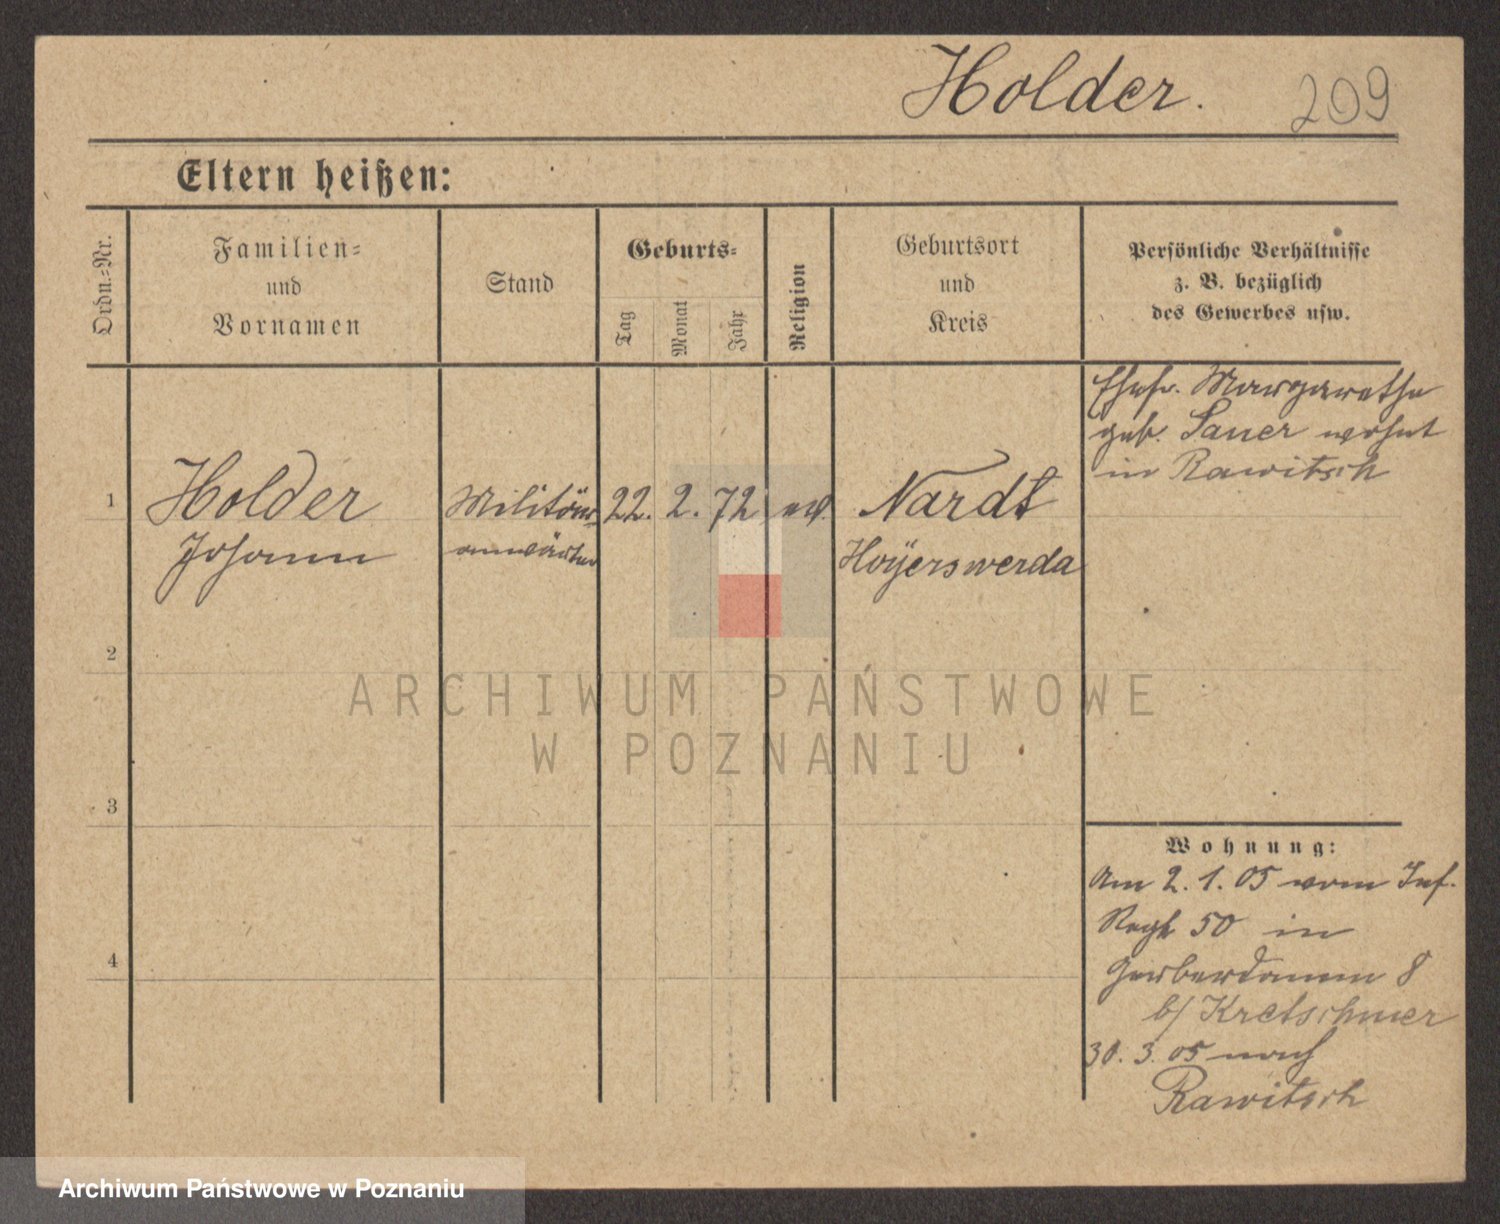 Holder. 209
Eltern heißen:
Ordn.-Nr.
Familien-
und
Vornamen
Stand
Geburts-
Tag
Monat
Jahr
Religion
Geburtsort
und
Kreis
Persönliche Verhältnisse
z. B. bezüglich
des Gewerbes usw.
Ehefr. Margarethe
geb. Sauer wohnt
in Rawitsch
1 Holder Militär- 22. 2. 72 ev. Nardt
Johann anwärter Hoÿerswerda
2
ARCHIWUM PAŃSTWOWE
W POZNANIU
3
Wohnung:
Am 2. 1. 05 vom Inf.
Regt 50 in
4
Gerberdamm 8
b/ Kretschmer
30. 3. 05 nach
Rawitsch
Archiwum Państwowe w Poznaniu